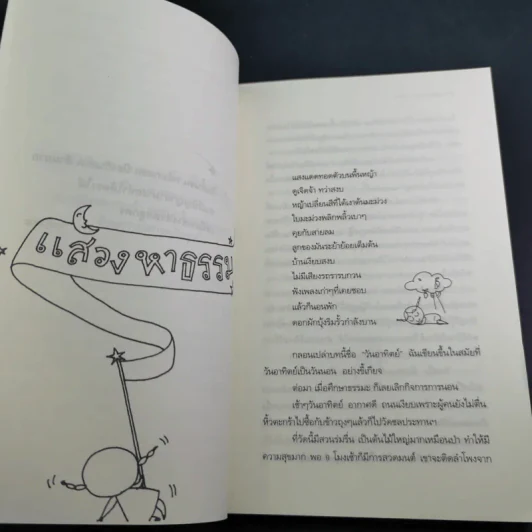 แสวงหาธรรม
แสงแดดทอดตัวบนพื้นหญ้า
ดูเจิดจ้า ทว่าสงบ
หญ้าเปลี่ยนสีที่ใต้เงาต้นมะม่วง
ใบมะม่วงพลิกพลิ้วเบาๆ
คุยกับสายลม
ลูกของมันระย้าย้อยเต็มต้น
บ้านเงียบสงบ
ไม่มีเสียงรถรารบกวน
ฟังเพลงเก่าๆที่เคยชอบ
แล้วก็นอนพัก
ดอกผักบุ้งริมรั้วกำลังบาน
กลอนเปล่าบทนี้ชื่อ "วันอาทิตย์" ฉันเขียนขึ้นในสมัยที่
วันอาทิตย์เป็นวันนอน อย่างขี้เกียจ
ต่อมา เมื่อศึกษาธรรมะ ก็เลยเลิกกิจการการนอน
เช้าๆวันอาทิตย์ อากาศดี ถนนเงียบเพราะผู้คนยังไม่ตื่น
หิ้วตะกร้าไปซื้อกับข้าวถุงๆแล้วก็ไปวัดชลประทานฯ
ที่วัดนี้มีสวนร่มรื่น เป็นต้นไม้ใหญ่มากเหมือนป่า ทำให้มี
ความสุขมาก พอ 8 โมงเช้าก็มีการสวดมนต์ เขาจะติดลำโพงจาก